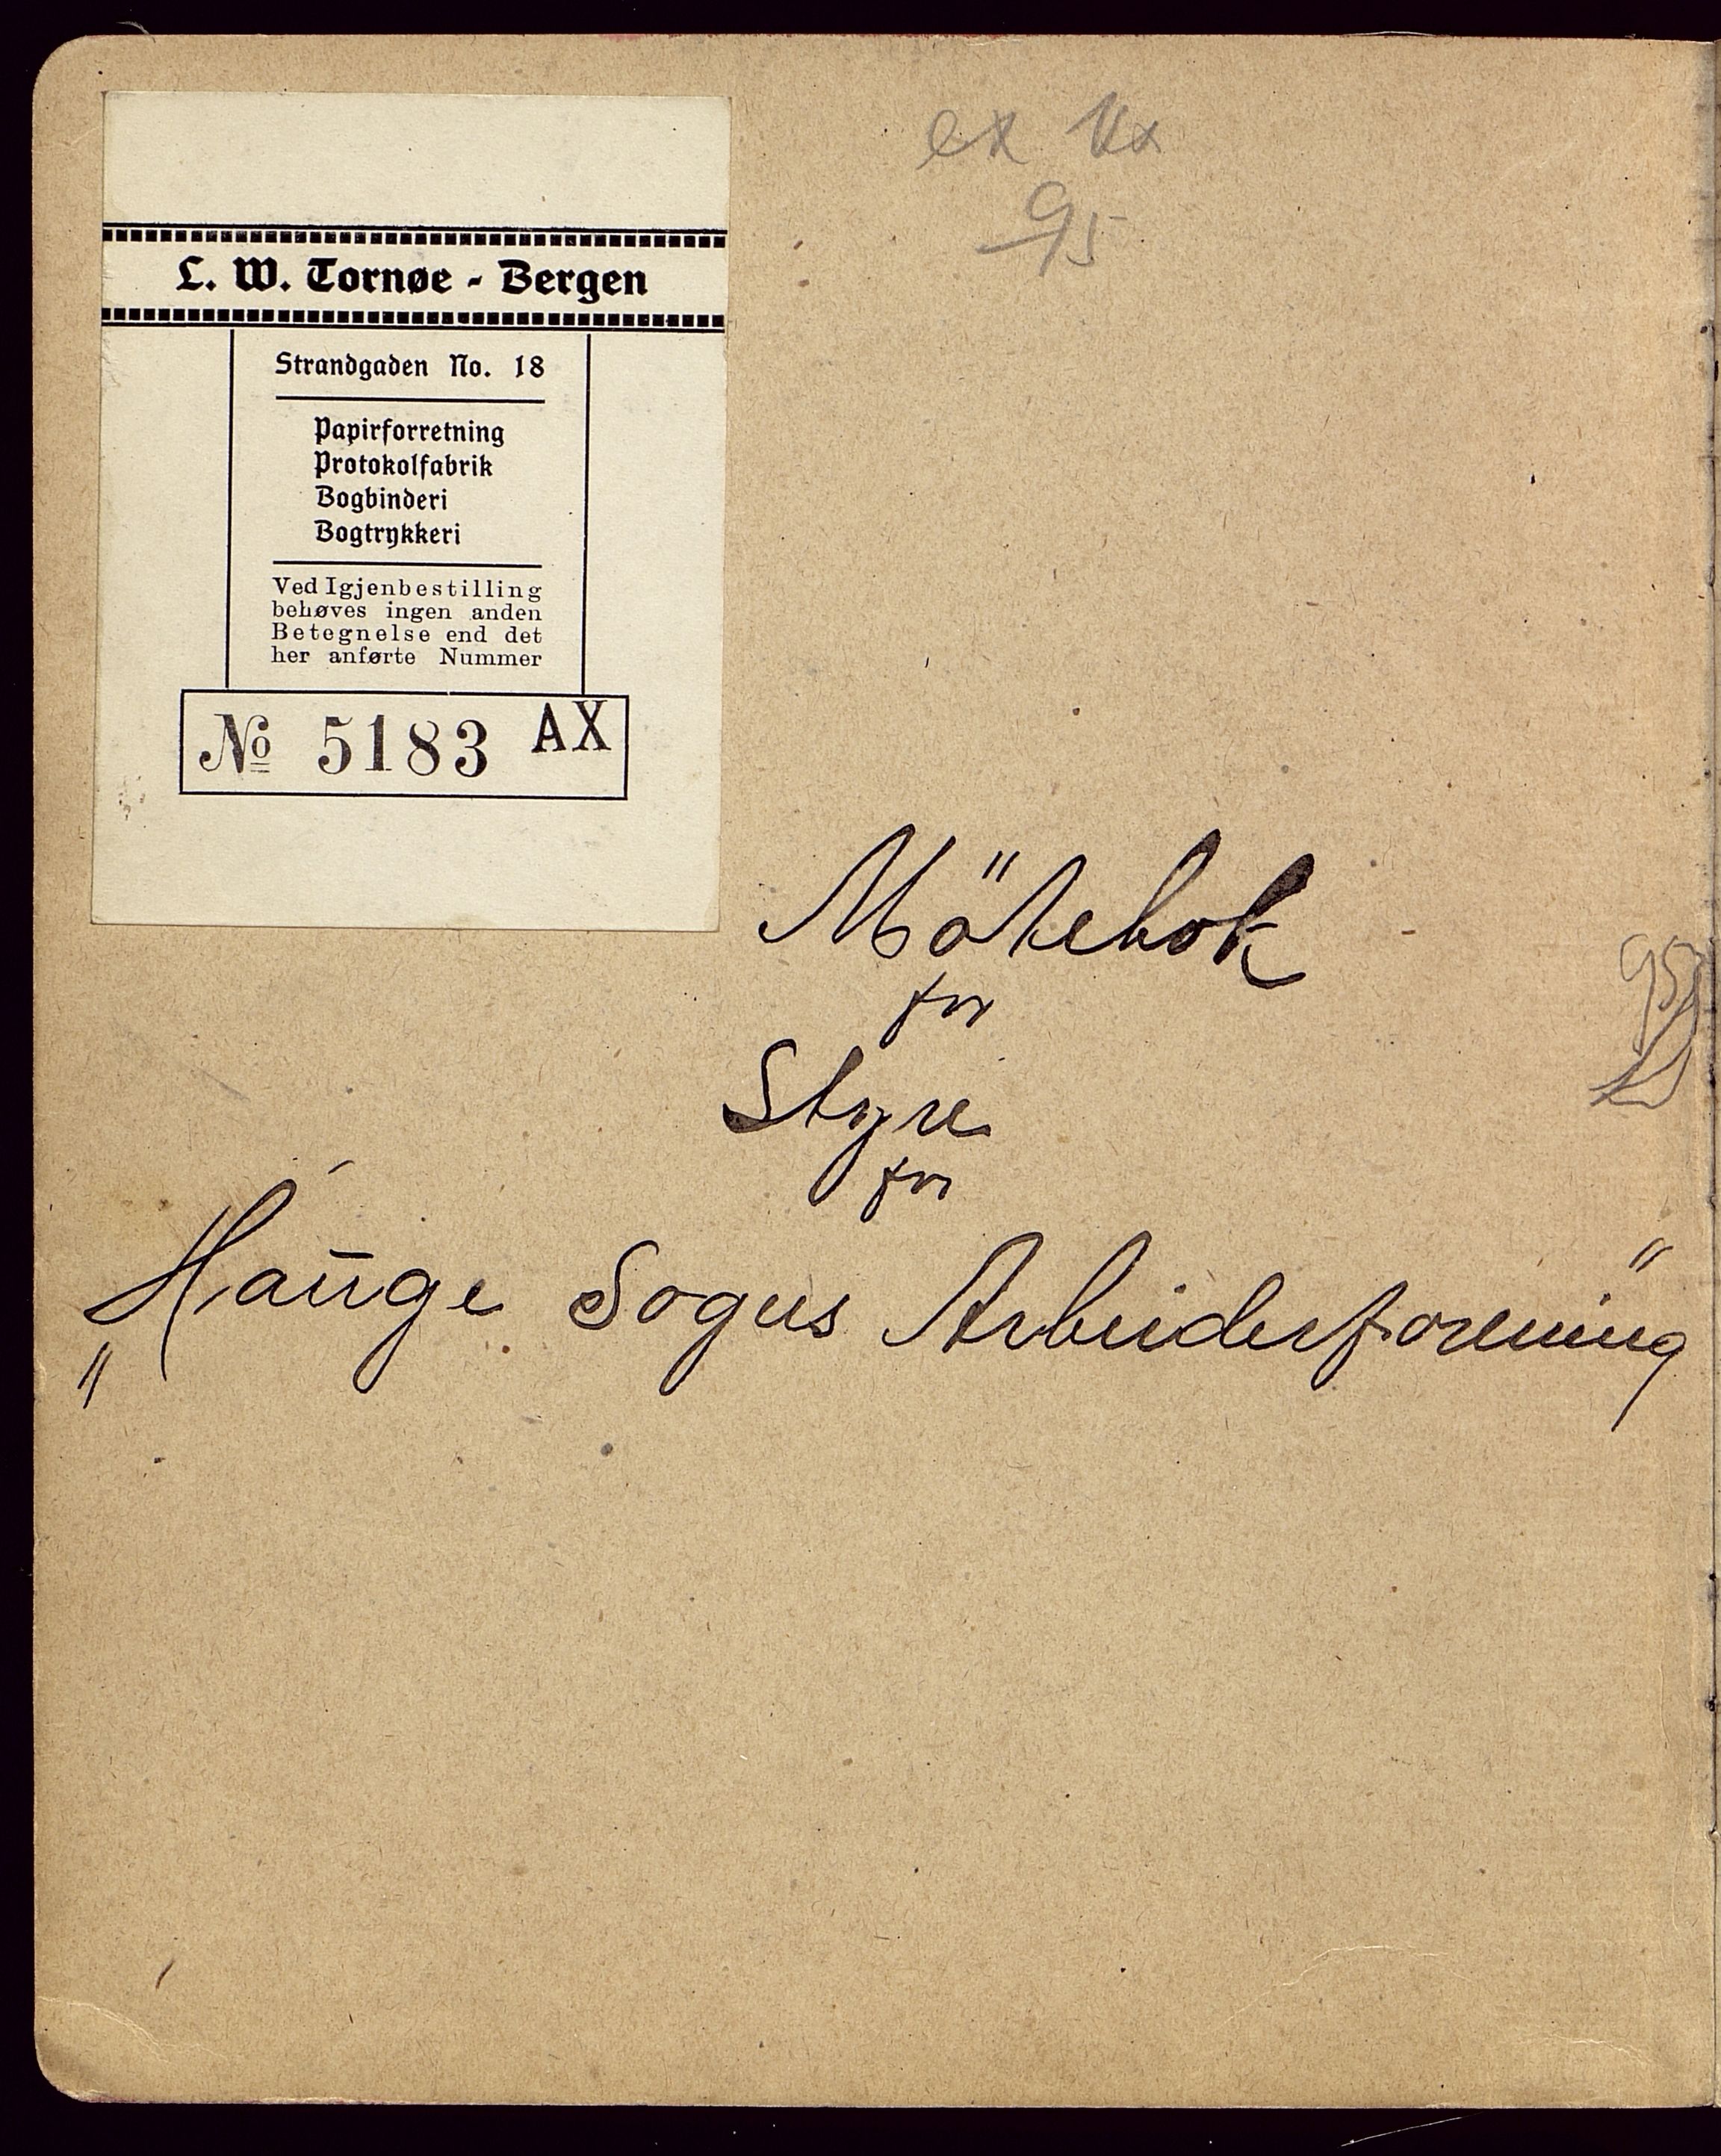 L. W. Tornøe - Bergen
Strandgaden No. 18
Papirforretning
Protokolfabrik
Bogbinderi
Bogtrykkeri
Ved Igjenbestilling
behøves ingen anden
Betegnelse end det
her anførte Nummer
No 5183 AX
95
Mötebok
for
Styre
for
„Hauge Sogns Arbeiderforening"
95